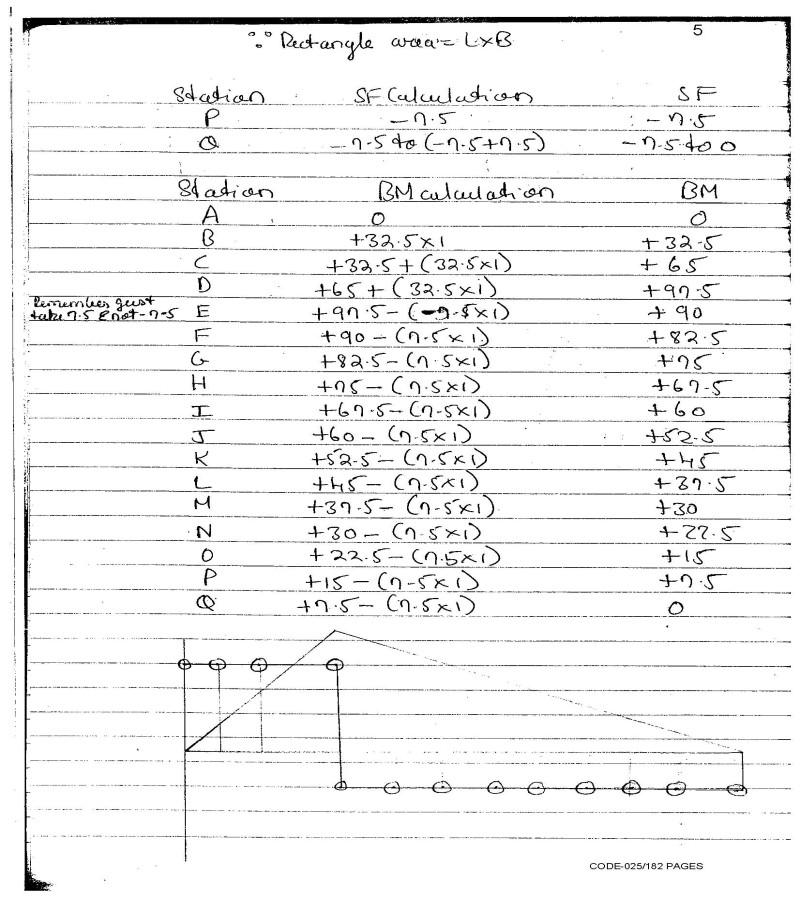 5
∴ Rectangle area = L×B
Station SF Calculation SF
P -7.5 : -7.5
Q -7.5 to (-7.5+7.5) -7.5 to 0
Station BM calculation BM
A 0 0
B +32.5×1 +32.5
C +32.5+(32.5×1) +65
D +65+(32.5×1) +97.5
Remember just
take 7.5 & not -7.5 E +97.5-(-7.5×1) +90
F +90-(7.5×1) +82.5
G +82.5-(7.5×1) +75
H +75-(7.5×1) +67.5
I +67.5-(7.5×1) +60
J +60-(7.5×1) +52.5
K +52.5-(7.5×1) +45
L +45-(7.5×1) +37.5
M +37.5-(7.5×1) +30
N +30-(7.5×1) +22.5
O +22.5-(7.5×1) +15
P +15-(7.5×1) +7.5
Q +7.5-(7.5×1) 0
CODE-025/182 PAGES